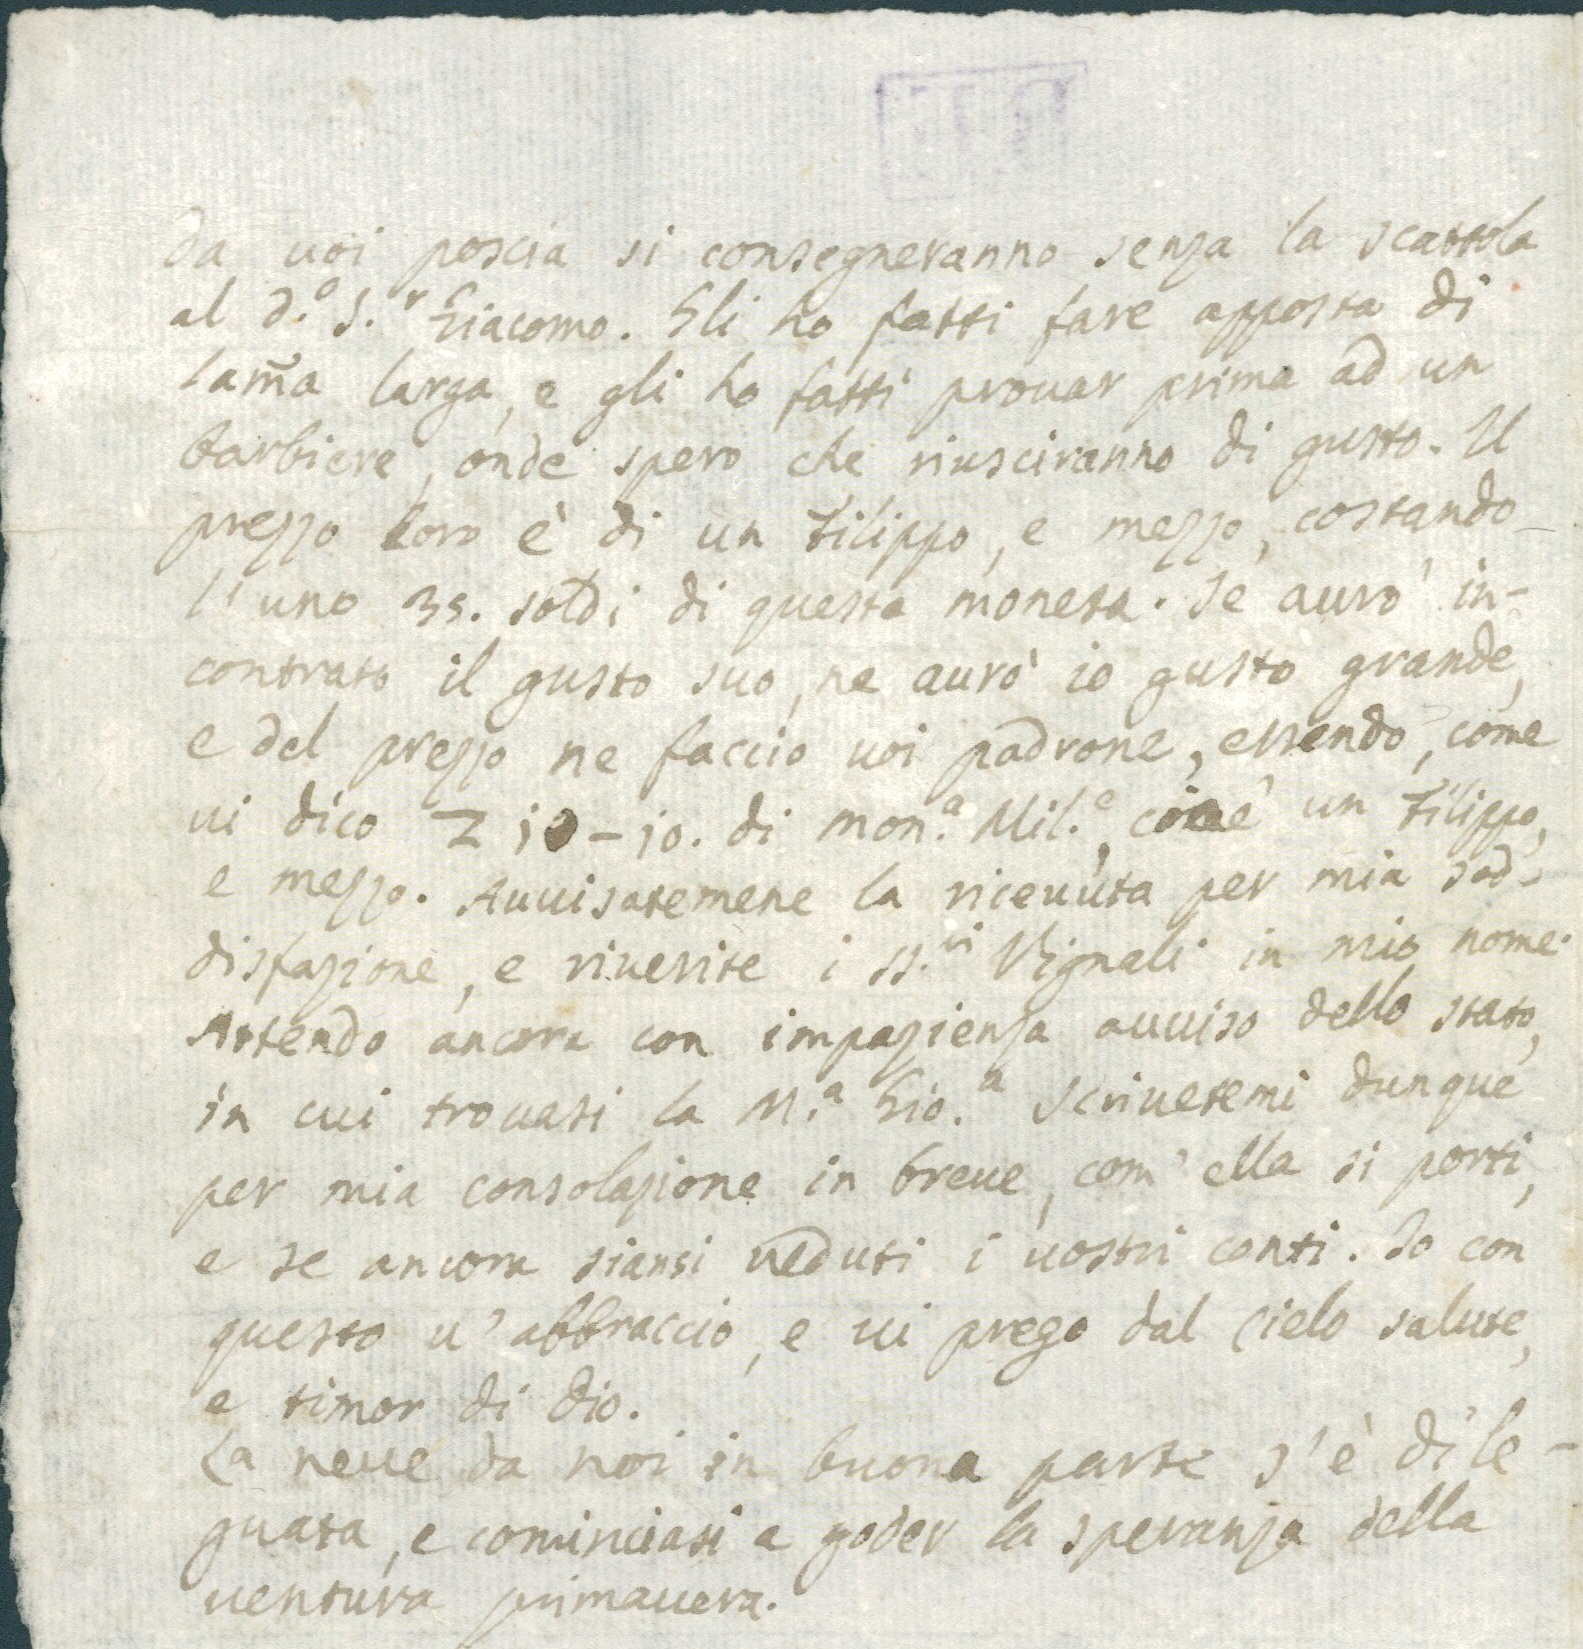 da voi poscia si consegneranno senza la scattola
al d.º S.r Giacomo. Gli ho fatti fare apposta di
lam̃a larga, e gli ho fatti provar prima ad un
barbiere, onde spero che riusciranno di gusto. Il
prezzo loro è di un Filippo, e mezzo, costando
l'uno 35. soldi di questa moneta. Se aurò in-
contrato il gusto suo, ne aurò io gusto grande,
e del prezzo ne faccio voi padrone, essendo, come
vi dico 10-10. di mon.a Mil.e, cioè un Filippo,
e mezzo. Avvisatemene la ricevuta per mia sod-
disfazione, e riverite i SS.ri Vignali in mio nome.
Attendo ancora con impazienza avviso dello stato,
in cui trovasi la M.a Gio.a Scrivetemi dunque
per mia consolazione in breve, com'ella si porti,
e se ancora siansi veduti i vostri conti. Io con
questo v'abbraccio, e vi prego dal Cielo salute,
e timor di Dio.
La neve da noi in buona parte s'è dile-
guata, e cominciasi a goder la speranza della
ventura primavera.